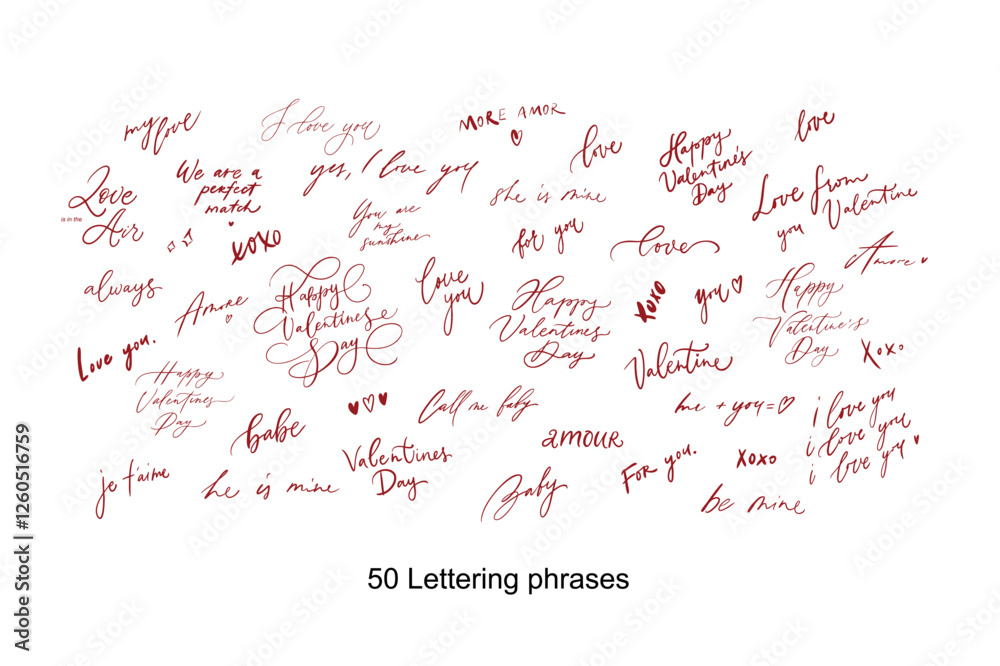 my love
I love you
MORE AMOR
love
love
Happy
Valentine's
Day
Love
is in the
Air
We are a
perfect
match
yes, I love you
she is mine
Love from
you Valentine
You are
my
sunshine
xoxo
for you
love
Amore
always
Amore
Happy
Valentines
Day
love
you
Happy
Valentines
Day
xoxo
you
Happy
Valentine's
Day
Love you.
Happy
Valentines
Day
Valentine
xoxo
babe
Call me baby
me + you =
i love you
i love you
i love you
amour
Valentines
Day
je t'aime
he is mine
Baby
FOR you.
xoxo
be mine
50 Lettering phrases
Adobe Stock | #1260516759